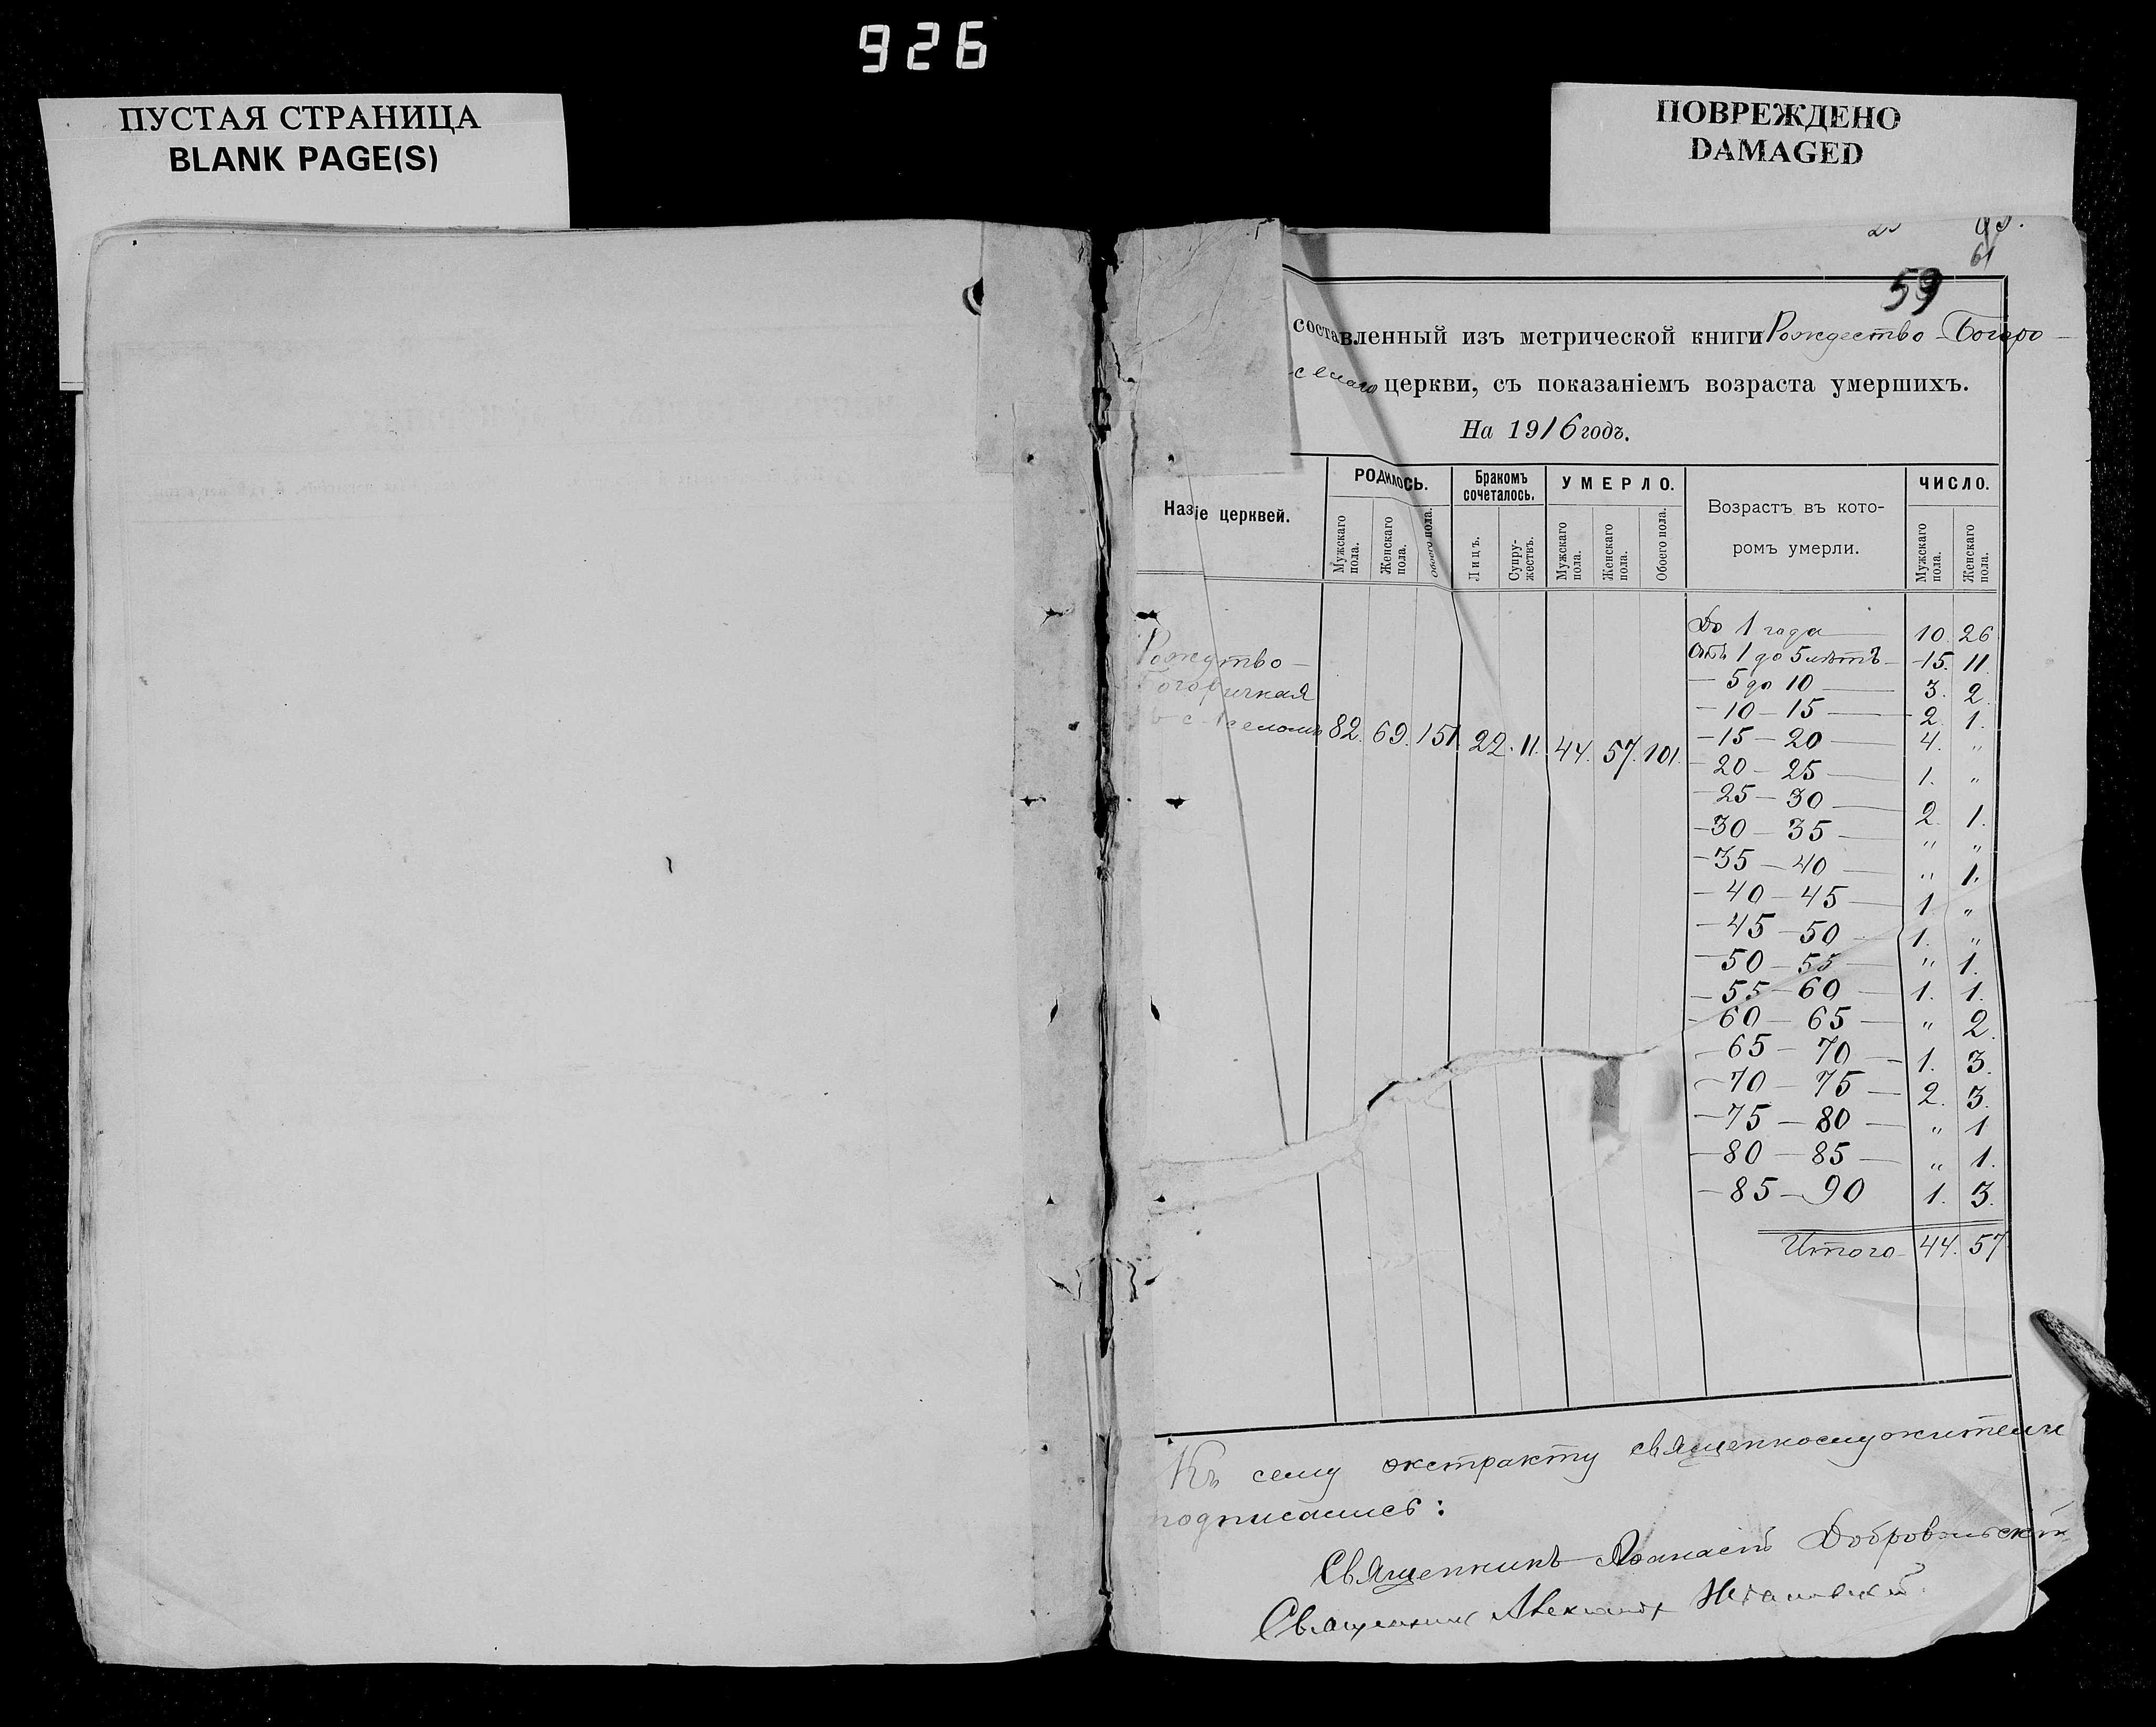 926
ПУСТАЯ СТРАНИЦА
BLANK PAGE(S)
ПОВРЕЖДЕНО
DAMAGED
61
59
составленный изъ метрической книги Рождество-Богоро-
церкви, съ показаніемъ возраста умершихъ.
На 1916 годъ.
Назіе церквей.
РОДИЛОСЬ.
Мужскаго пола.
Женскаго пола.
Обоего пола.
Бракомъ сочеталось.
Лицъ.
Супружествъ.
УМЕРЛО.
Мужскаго пола.
Женскаго пола.
Обоего пола.
Возрастъ въ кото-
ромъ умерли.
ЧИСЛО.
Мужскаго пола.
Женскаго пола.
82. 69. 151. 22. 11. 44. 57. 101.
До 1 года — 10. 26
Отъ 1 до 5 лѣтъ — 15. 11
— 5 до 10 — 3. 2.
— 10 — 15 — 2. 1.
— 15 — 20 — 4. "
— 20 — 25 — 1. "
— 25 — 30 — 2. 1.
— 30 — 35 — " "
— 35 — 40 — " 1.
— 40 — 45 — 1. "
— 45 — 50 — 1. "
— 50 — 55 — " 1.
— 55 — 60 — 1. 1.
— 60 — 65 — " 2.
— 65 — 70 — 1. 3.
— 70 — 75 — 2. 3.
— 75 — 80 — " 1
— 80 — 85 — " 1.
— 85 — 90 1. 3.
Итого 44. 57
Къ сему экстракту священнослужители
подписались:
Священникъ Добровольскій
Священникъ